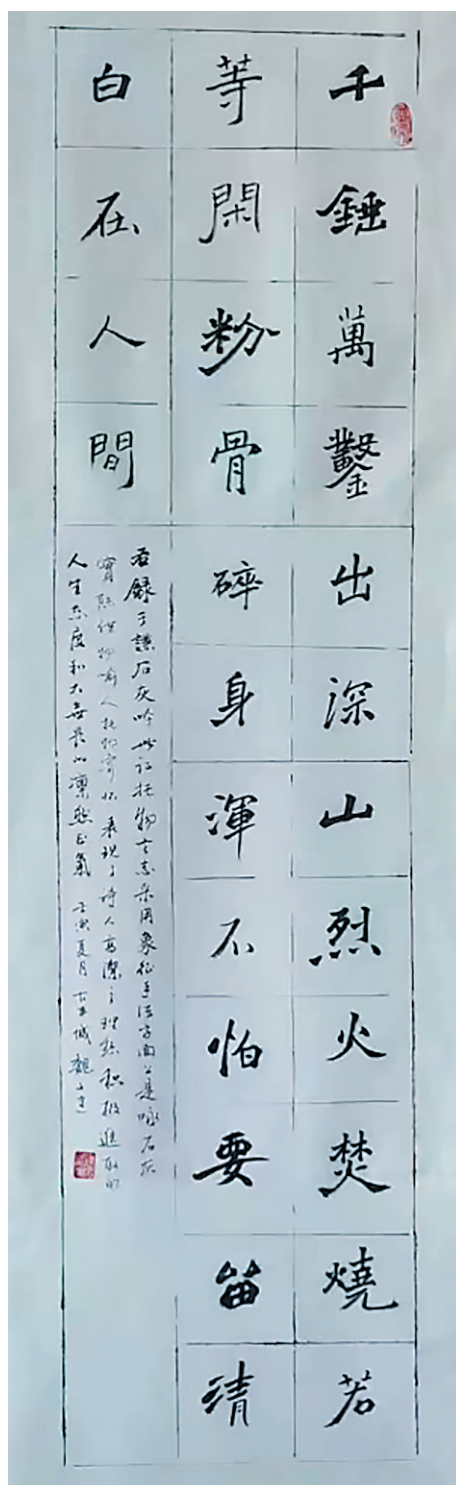 千錘萬鑿出深山烈火焚燒若
等閑粉骨碎身渾不怕要留清
白在人間
右錄于謙石灰吟此詩托物言志采用象征手法字面上是咏石灰
實際借物喻人托物寄怀表現了詩人高潔之理想积极進取的
人生态度和大無畏的凛然正氣 壬寅夏月 古羊城